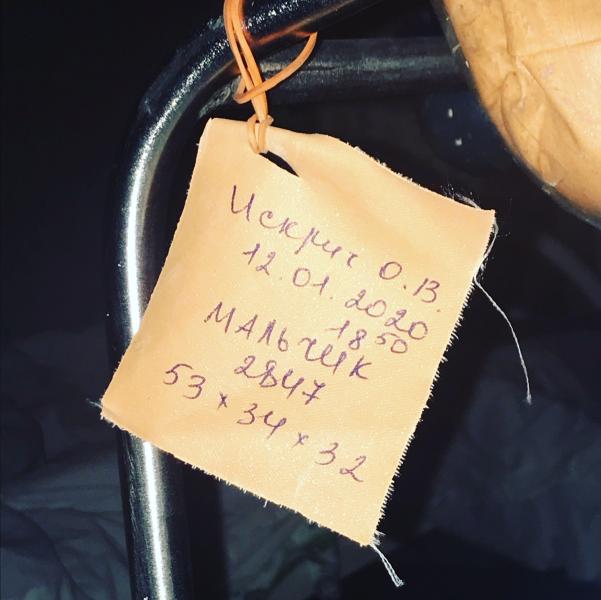 Искрич О.В.
12.01.2020
18 50
МАЛЬЧИК
2847
53 x 34 x 32